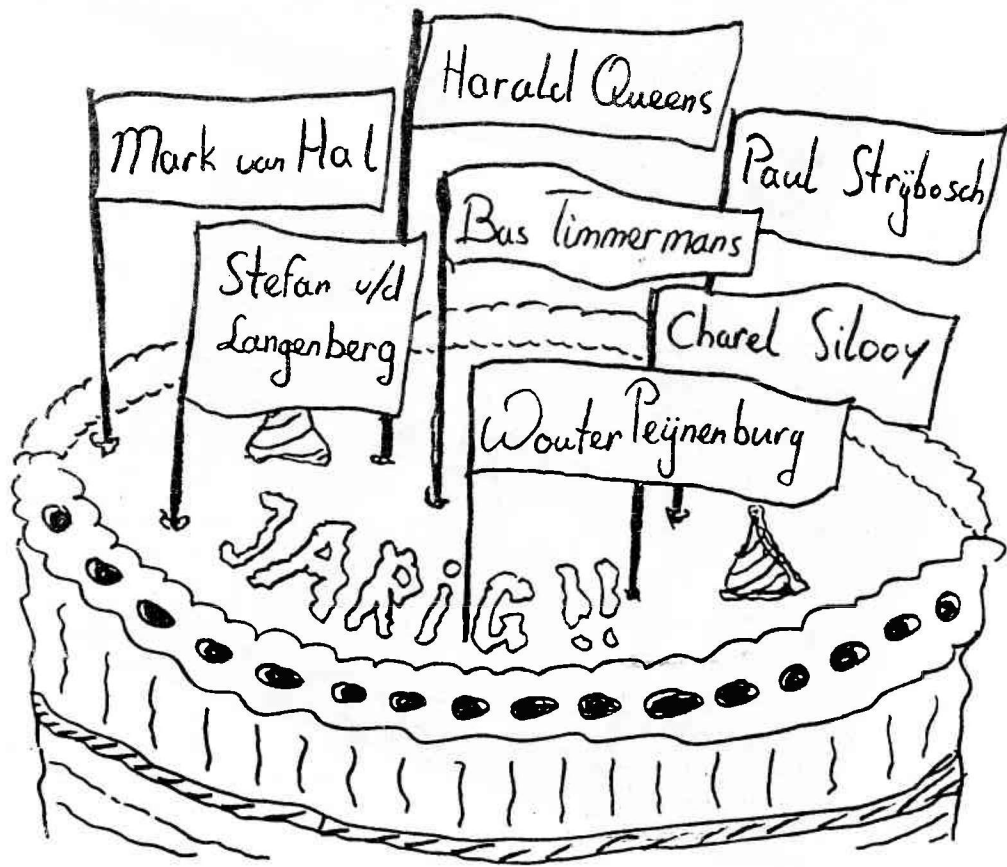 Harald Queens
Mark van Hal
Paul Strijbosch
Bas Timmermans
Stefan v/d
Langenberg
Charel Silooy
Wouter Peijnenburg
JARiG !!